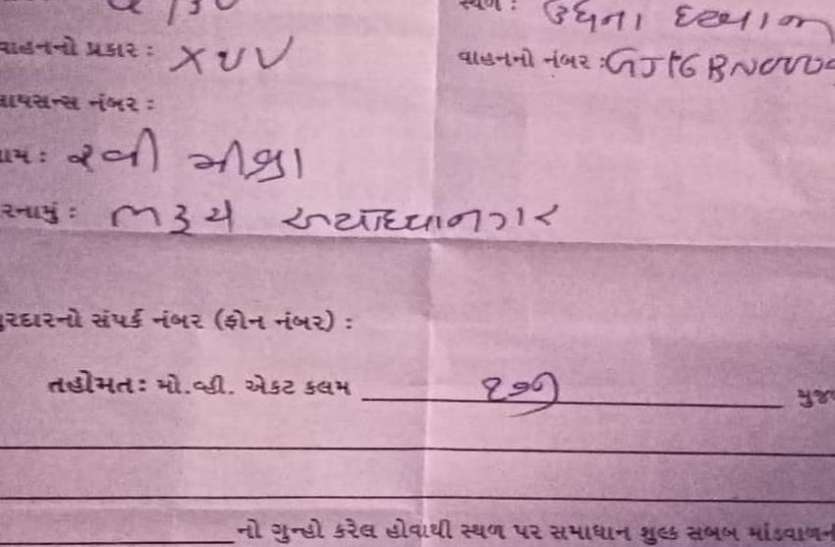 સ્થળ : ઉધના દરવાજા
વાહનનો પ્રકાર : XUV વાહનનો નંબર : GJ16BN
લાયસન્સ નંબર :
નામ : રવી મીશ્રા
સરનામું : ભરૂચ અયોધ્યાનગર
સંપર્ક નંબર (ફોન નંબર) :
તહોમત : મો.વ્હી. એકટ કલમ ૧૭૭
નો ગુન્હો કરેલ હોવાથી સ્થળ પર સમાધાન શુલ્ક સબબ